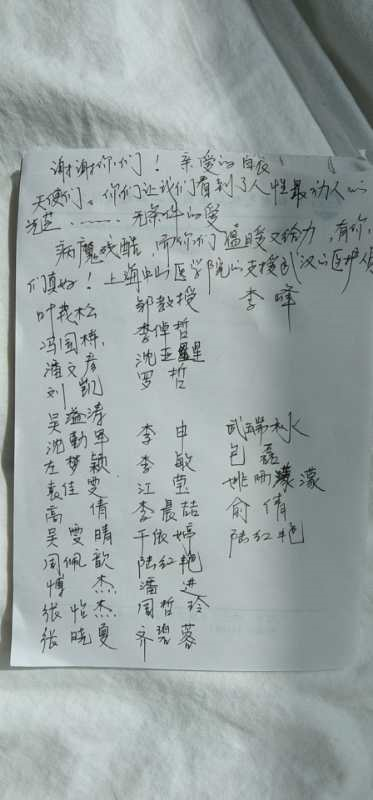 谢谢你们！亲爱的白衣
天使们。你们让我们看到了人性最动人的
光芒……无条件的爱
病魔残酷，而你们温暖又给力，有你
们真好！上海中山医学院的支援武汉的医护人
叶茂松 邹教授 李峰
冯国栋 李倬哲
潘文彦 沈亚星
刘凯 罗哲
吴溢涛
沈勤军 李申 武端水
左梦颖 李敏 包磊
袁佳雯 江莹 姚雨濛
高倩 李晨喆 俞倩
吴雯晴 干依婷 陆红艳
周佩歆 陆红艳
傅杰 潘进
张怡杰 周哲玲
张晓夏 齐碧蓉